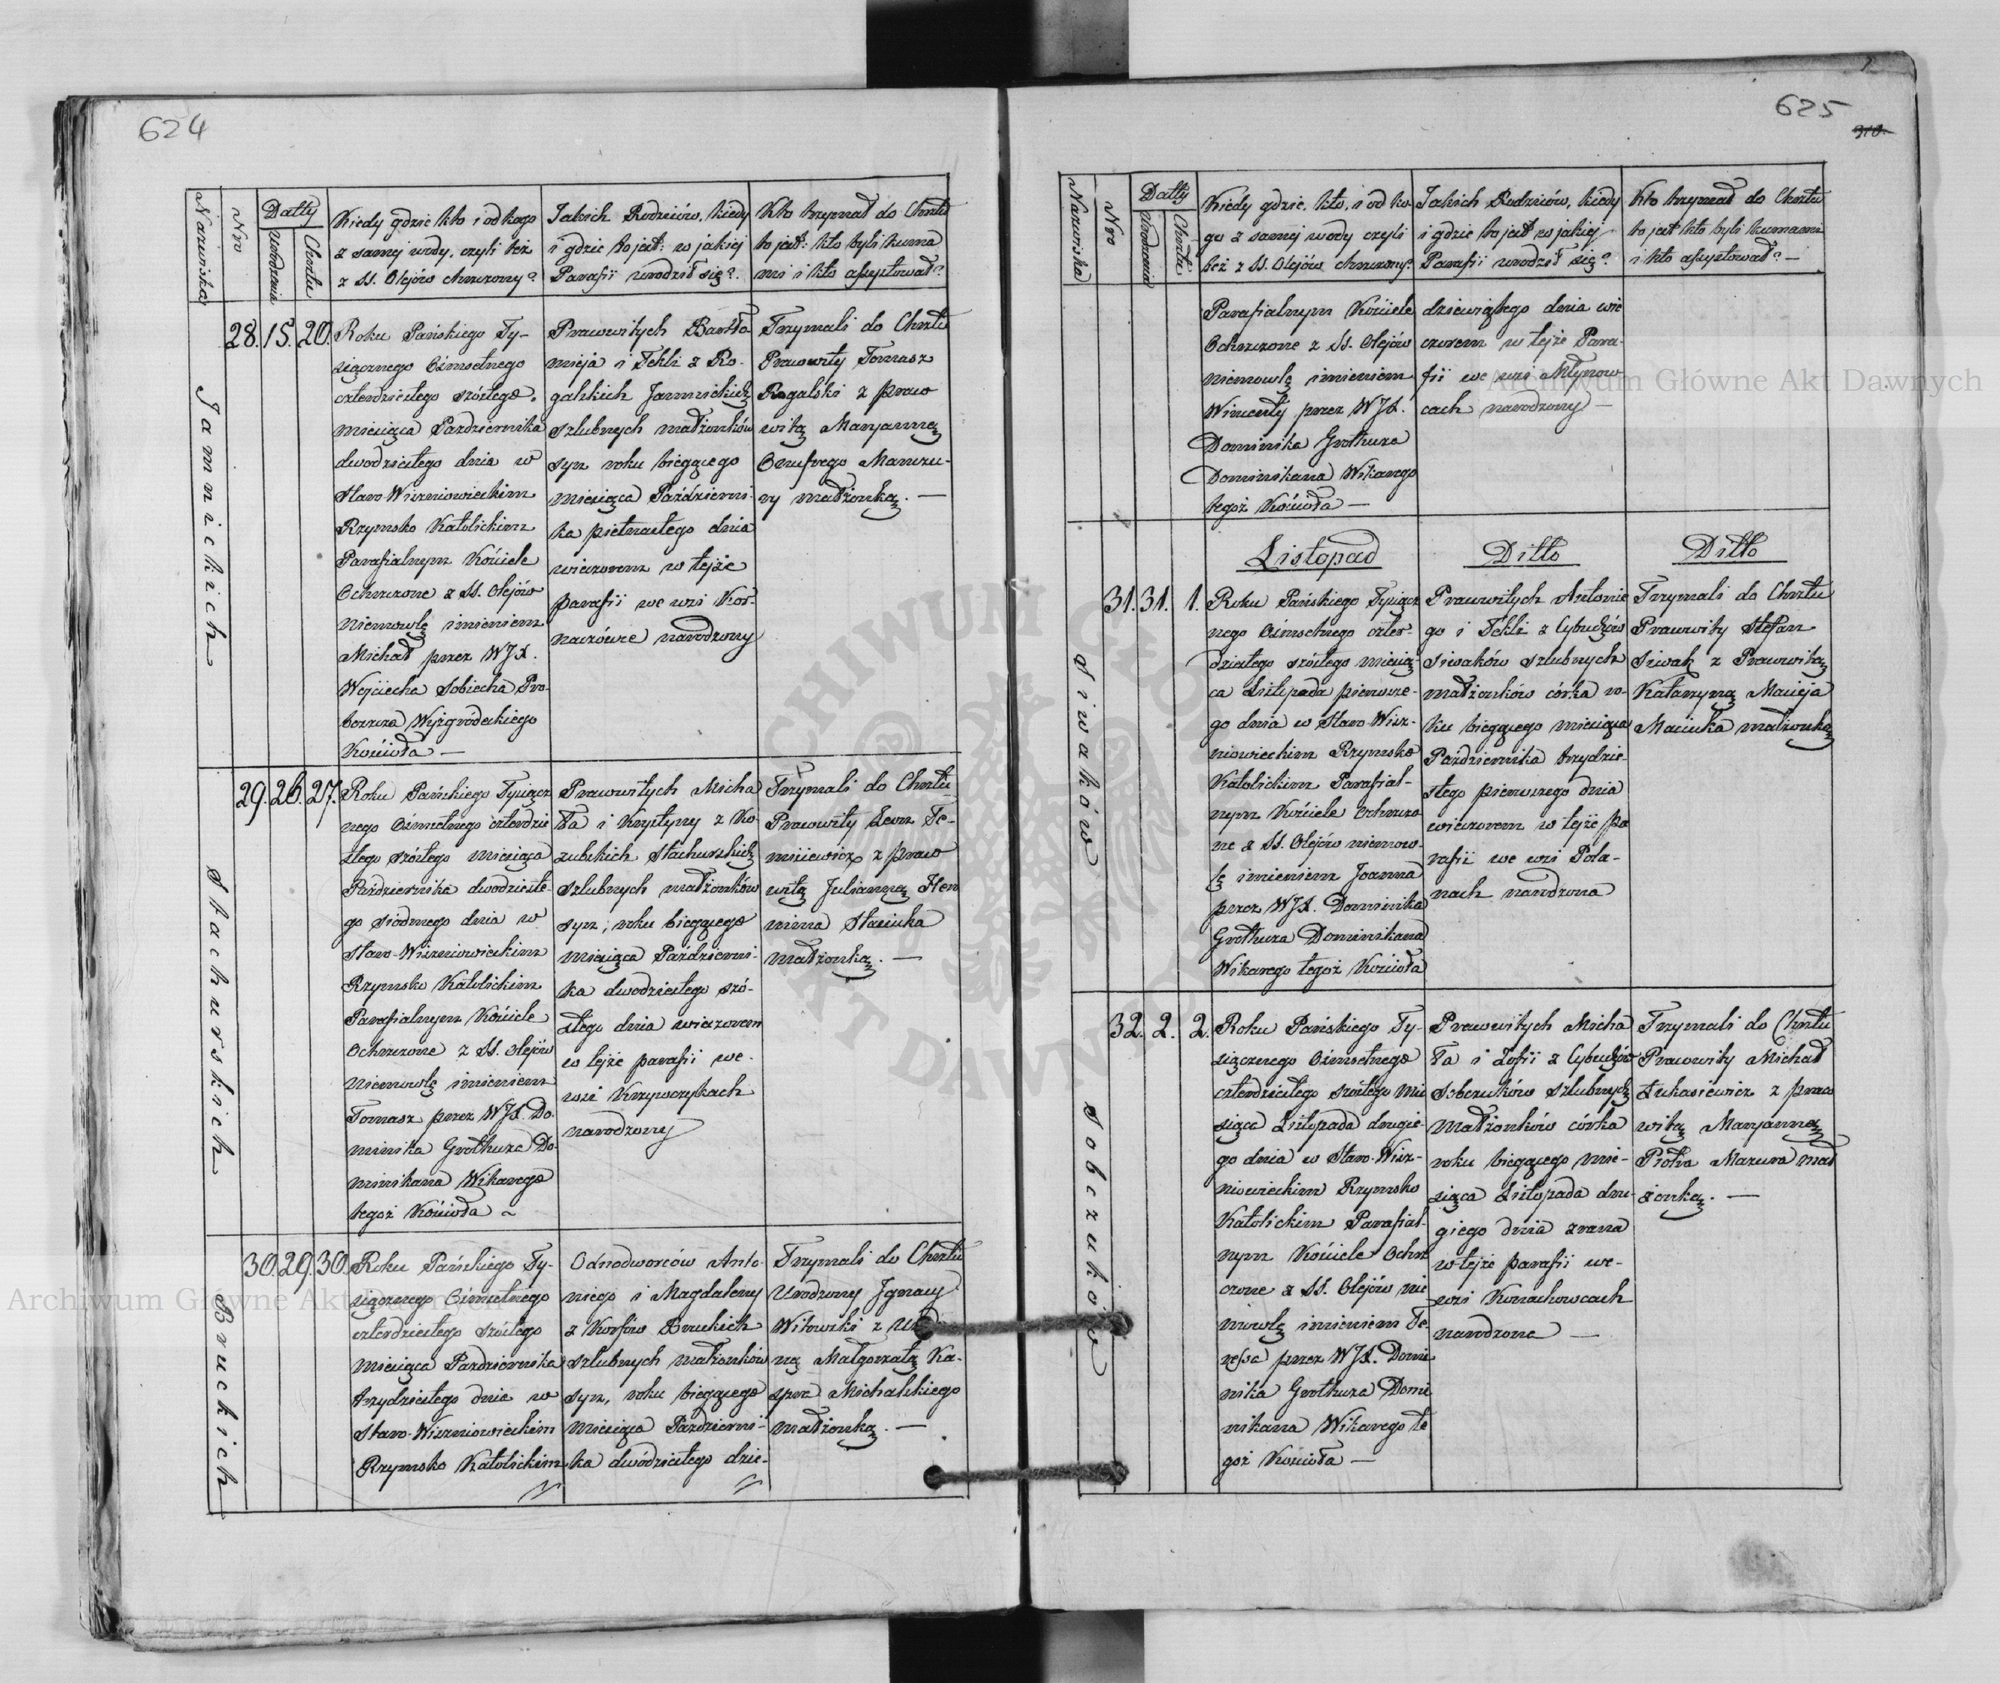 624
Nazwiska
Nro
Datty
Urodzenia
Chrztu
Kiedy gdzie kto i od kogo
z samej wody, czyli też
z SS. Olejów chrzczony?
Jakich Rodziców, kiedy
i gdzie to jest: w jakiej
Parafii urodził się?
Kto trzymał do Chrztu
to jest: kto byli kuma
mi i kto assystował?
Jamnickich
28. 15. 20.
Roku Pańskiego Ty-
siącznego Ośmsetnego
czterdziestego szóstego
miesiąca Października
dwudziestego dnia w
Staro-Wiszniowieckim
Rzymsko Katolickim
Parafialnym Kościele
Ochrzczone z SS. Olejów
niemowlę imieniem
Michał przez WJX.
Wojciecha Sobiecha Pro-
boszcza Wyżgrodeckiego
Kościoła —
Prawowitych Bartło-
mieja i Tekli z Ro-
galskich Jamnickich
szlubnych małżonków
syn roku bieżącego
miesiąca Październi-
ka pietnastego dnia
wieczorem w tejże
parafii we wsi Kor-
naczówce narodzony
Trzymali do Chrztu
Prawowity Tomasz
Rogalski z prawo
witą Maryanną
Onufrego Mamzu-
ry małżonką. —
Stachurskich
29. 26. 27.
Roku Pańskiego Tysiącz
nego Ośmsetnego czterdzie
stego szóstego miesiąca
Października dwudzieste-
go siódmego dnia w
Staro-Wiszniowieckim
Rzymsko Katolickim
Parafialnym Kościele
Ochrzczone z SS. Olejów
Niemowlę imieniem
Tomasz przez WJX. Do-
minika Grothuza Do-
minikana Wikarego
tegoż Kościoła ~
Prawowitych Micha
ła i Krystyny z Ko-
zubskich Stachurskich
szlubnych małżonków
syn; roku bieżącego
miesiąca Październi-
ka dwudziestego szó-
stego dnia wieczorem
w tejże parafii we
wsi Krzywczykach
narodzony
Trzymali do Chrztu
Prawowity Leon Te-
misiewicz z prawo
witą Julianną Hen
nima Stasiuka
małżonką. —
Bruckich
30. 29. 30.
Roku Pańskiego Ty-
siącznego Ośmsetnego
czterdziestego szóstego
miesiąca Października
trzydziestego dnia w
Staro-Wiszniowieckim
Rzymsko Katolickim
Odnodworców Anto-
niego i Magdaleny
z Korfów Bruckich
szlubnych małżonków
syn, roku bieżącego
miesiąca Październi-
ka dwudziestego dzie-
Trzymali do Chrztu
Urodzony Ignacy
Witowski z
ną Małgorzatą Ka-
spra Michalskiego
małżonką. —
625
310.
Nazwiska
Nro
Datty
Urodzenia
Chrztu
Kiedy gdzie, kto, i od ko-
go z samej wody czyli
też z SS. Olejów chrzczony?
Jakich Rodziców, kiedy
i gdzie to jest w jakiej
Parafii urodził się?
Kto trzymał do Chrztu
to jest kto byli kumami
i kto assystował? —
Parafialnym Kościele
Ochrzczone z SS. Olejów
niemowlę imieniem
Wincenty przez WJX.
Dominika Grothuza
Dominikana Wikarego
tegoż Kościoła —
dziewiątego dnia wie
czorem w tejże Para-
fii we wsi Młynow
cach narodzony —
Listopad
Ditto
Ditto
Siwaków
31. 31. 1.
Roku Pańskiego Tysiącz
nego Ośmsetnego czter-
dziestego szóstego miesią-
ca Listopada pierwsze-
go dnia w Staro-Wisz-
niowieckim Rzymsko
Katolickim Parafial-
nym Kościele Ochrzczo
ne z SS. Olejów niemow-
lę imieniem Joanna
przez WJX. Dominika
Grothuza Dominikana
Wikarego tegoż Kościoła
Prawowitych Antonie
go i Tekli z Cybuchów
Siwaków szlubnych
małżonków córka ro-
ku bieżącego miesiąca
Października trzydzie-
stego pierwszego dnia
wieczorem w tejże pa
rafii we wsi Pola-
nach narodzona
Trzymali do Chrztu
Prawowity Stefan
Siwak z Prawowitą
Katarzyną Macieja
Maciuka małżonką
Sobczuków
32. 2. 2.
Roku Pańskiego Ty-
siącznego Ośmsetnego
czterdziestego szóstego mie
siąca Listopada drugie-
go dnia w Staro-Wisz-
niowieckim Rzymsko
Katolickim Parafial-
nym Kościele Ochrz
czone z SS. Olejów nie
mowlę imieniem Te-
ressa przez WJX. Domi
nika Grothuza Domi
nikana Wikarego te
goż Kościoła —
Prawowitych Micha
ła i Zofii z Cybuchów
Sobczuków szlubnych
małżonków córka
roku bieżącego mie-
siąca Listopada dru-
giego dnia zrana
w tejże parafii we
wsi Konachowcach
narodzona —
Trzymali do Chrztu
Prawowity Michał
Łukasiewicz z prawo
witą Maryanną
Piotra Mazura mał
żonką. —
Archiwum Główne Akt Dawnych
Archiwum Główne Akt Dawnych
ARCHIWUM GŁÓWNE AKT DAWNYCH